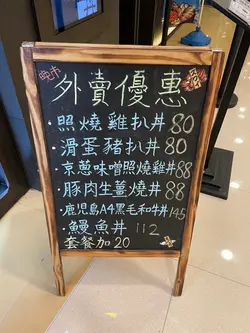 外賣優惠
·照燒雞扒丼 80
·滑蛋豬扒丼 80
·京蔥味噌照燒雞丼 88
·豚肉生薑燒丼 88
·鹿児島A4黑毛和牛丼 145
·鰻魚丼 112
套餐加 20